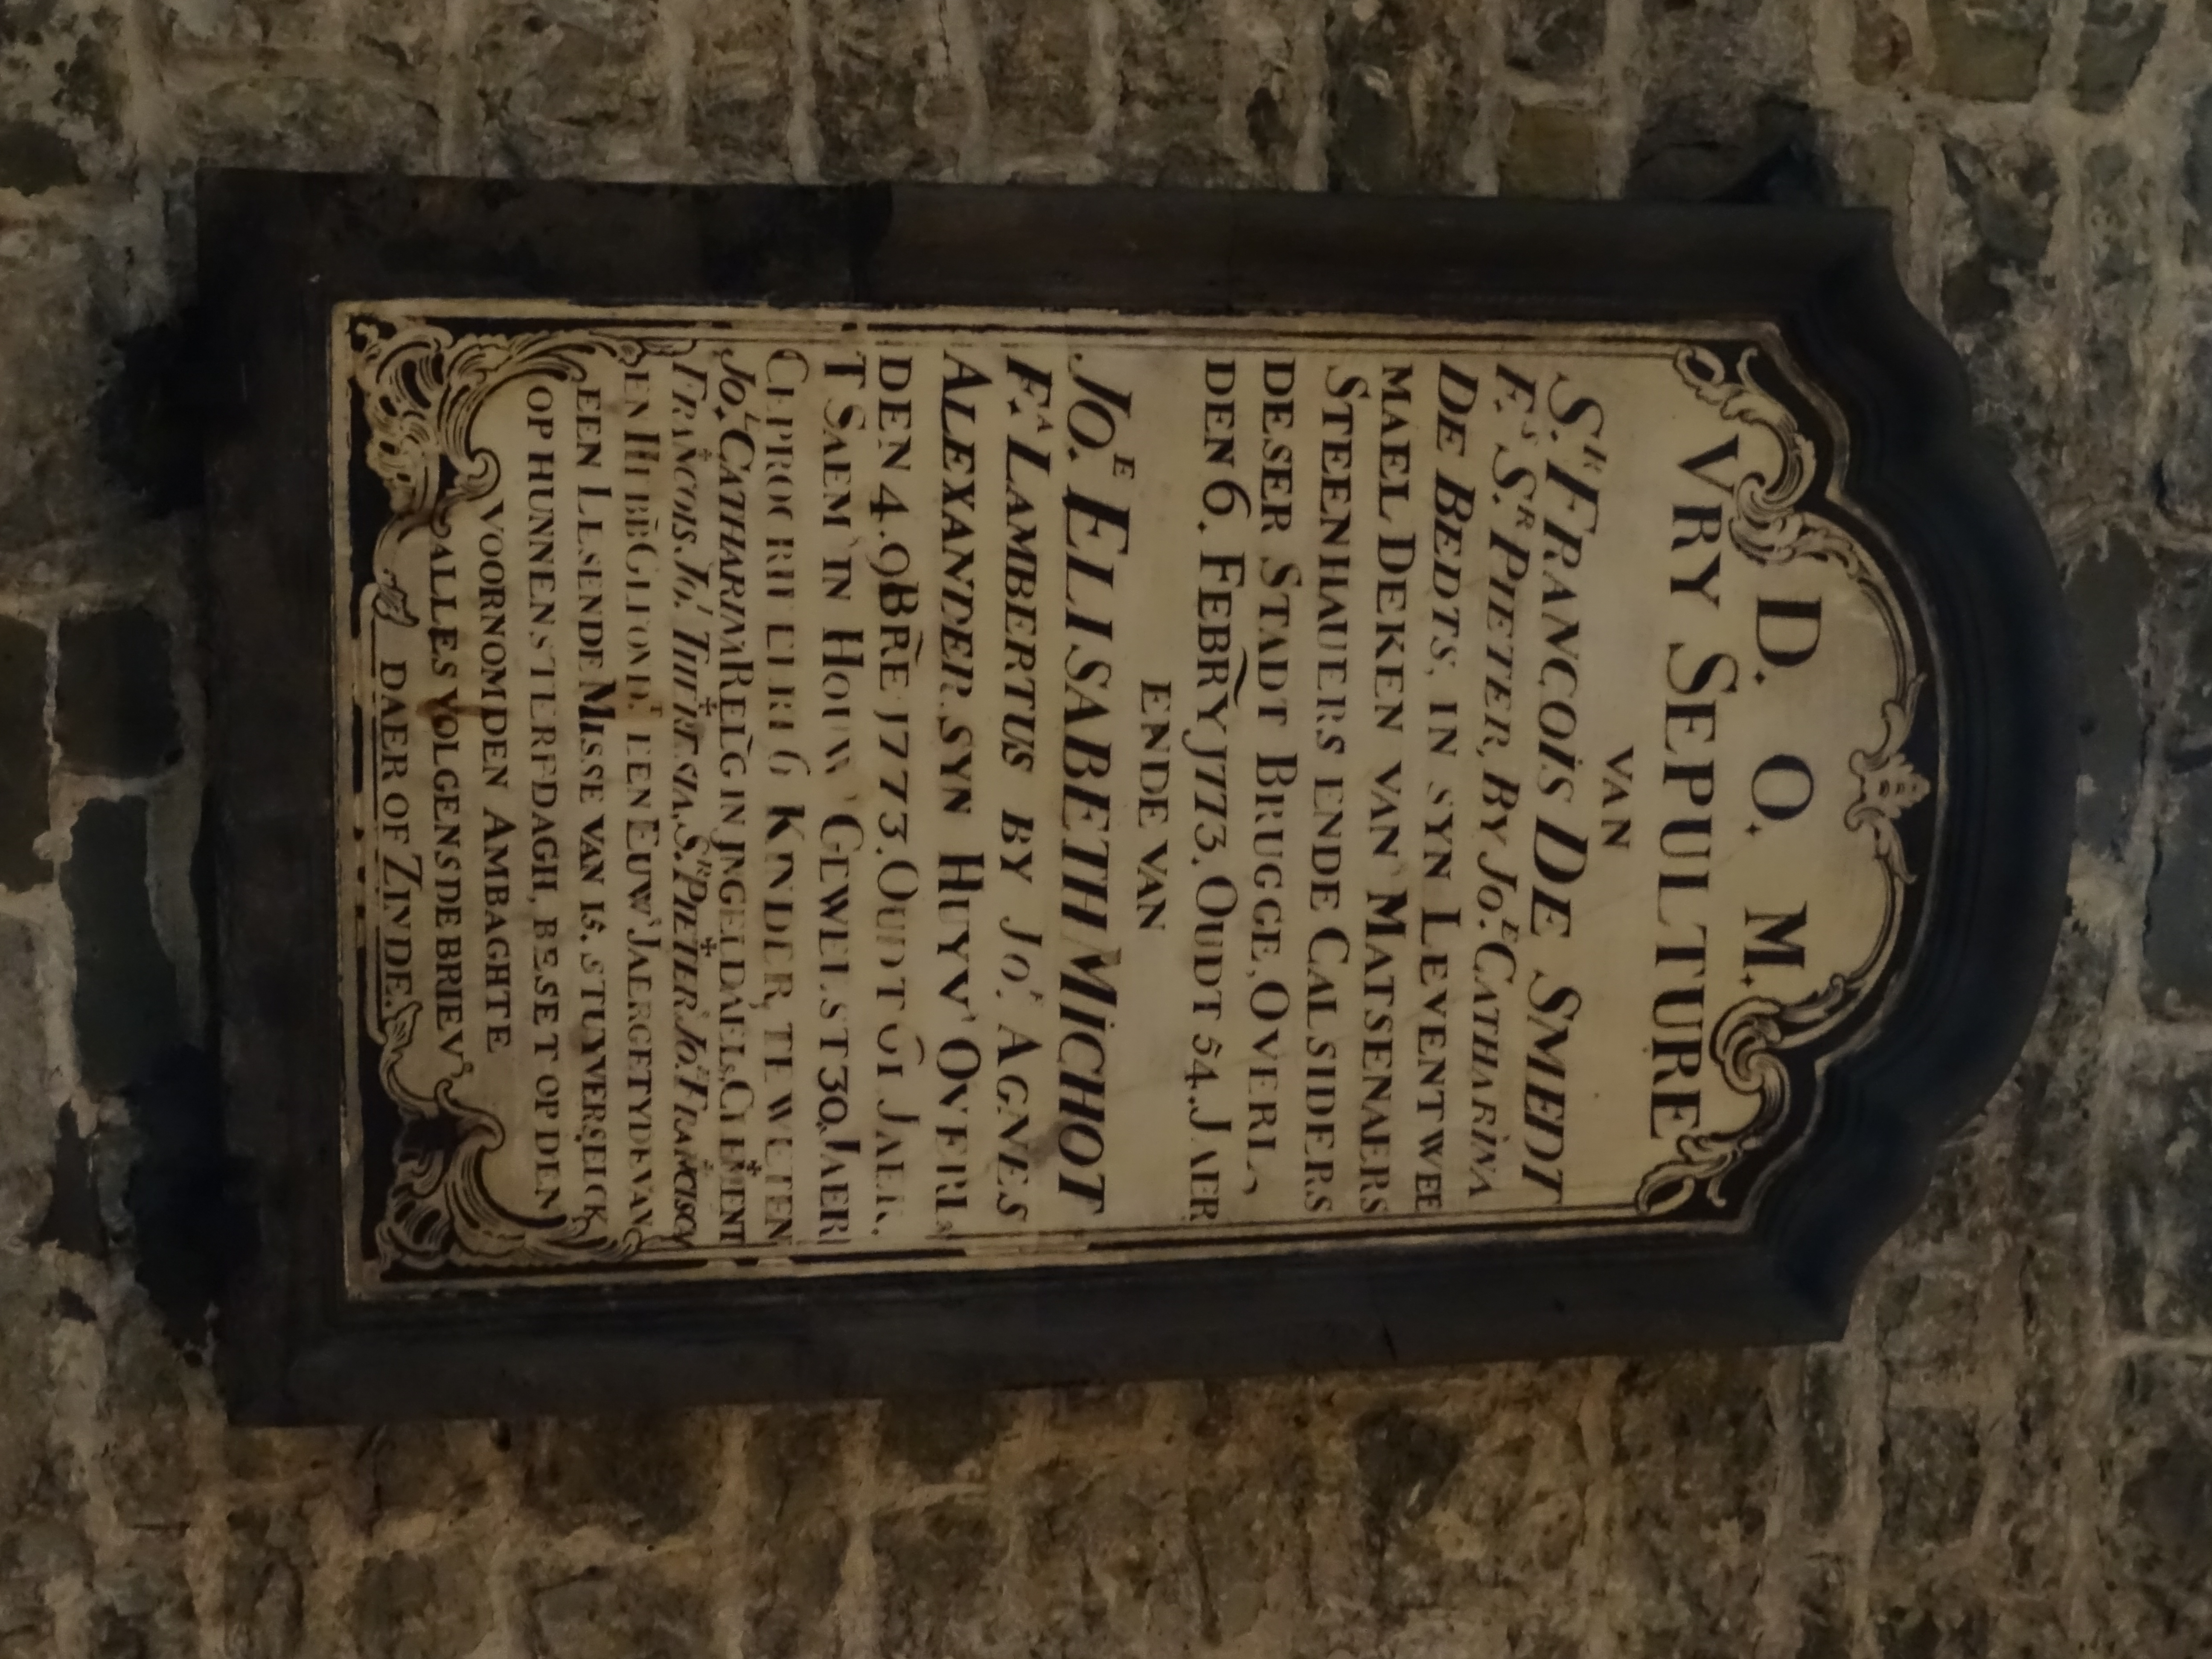 D. O. M.
VRY SEPULTURE
VAN
S.R FRANCOIS DE SMEDT
F.S S.R PIETER, BY JO.E CATHARINA
DE BEDTS, IN SYN LEVEN TWEE
MAEL DEKEN VAN MATSENAERS
STEENHAUERS ENDE CALSIDERS
DESER STADT BRUGGE, OVERL,
DEN 6. FEBRY J773. OUDT 54. JAER
ENDE VAN
JO.E ELISABETH MICHOT
F.A LAMBERTUS BY JO.E AGNES
ALEXANDER SYN HUYV OVERL
DEN 4. 9BRE J773. OUDT 61 JAER.
T SAEM IN HOUW GEWEEST 30 JAER
GEPROCREEERT 6 KINDER, TE WETEN
JO.E CATHARINA RELIG IN JNGELDAELS, CLEMENT
FRANCOIS. JO.E THERESIA, S.R PIETER JO.E FRANCISCA
EN HEBB GEFOND.T EEN EUW JAERGETYDE VAN
EEN LESENDE MISSE VAN 15. STUYVERS ELCK
OP HUNNEN STERFDAGH, BESET OP DEN
VOORNOMDEN AMBAGHTE
ALLES VOLGENS DE BRIEV
DAER OF ZINDE.